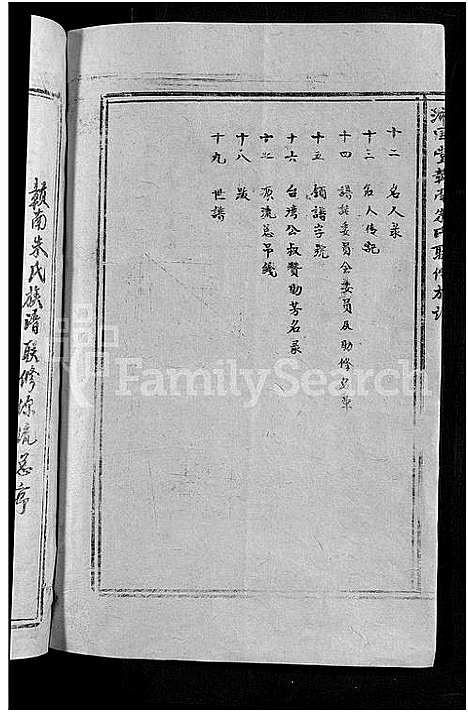 十二 名人录
十三 名人传记
十四 谱誌委员会委员及助修名单
十五 领谱字号
十六 台湾公叔赞助芳名录
十七 源流总吊线
十八 跋
十九 世谱
赣南朱氏族谱联修源流总序
FamilySearch